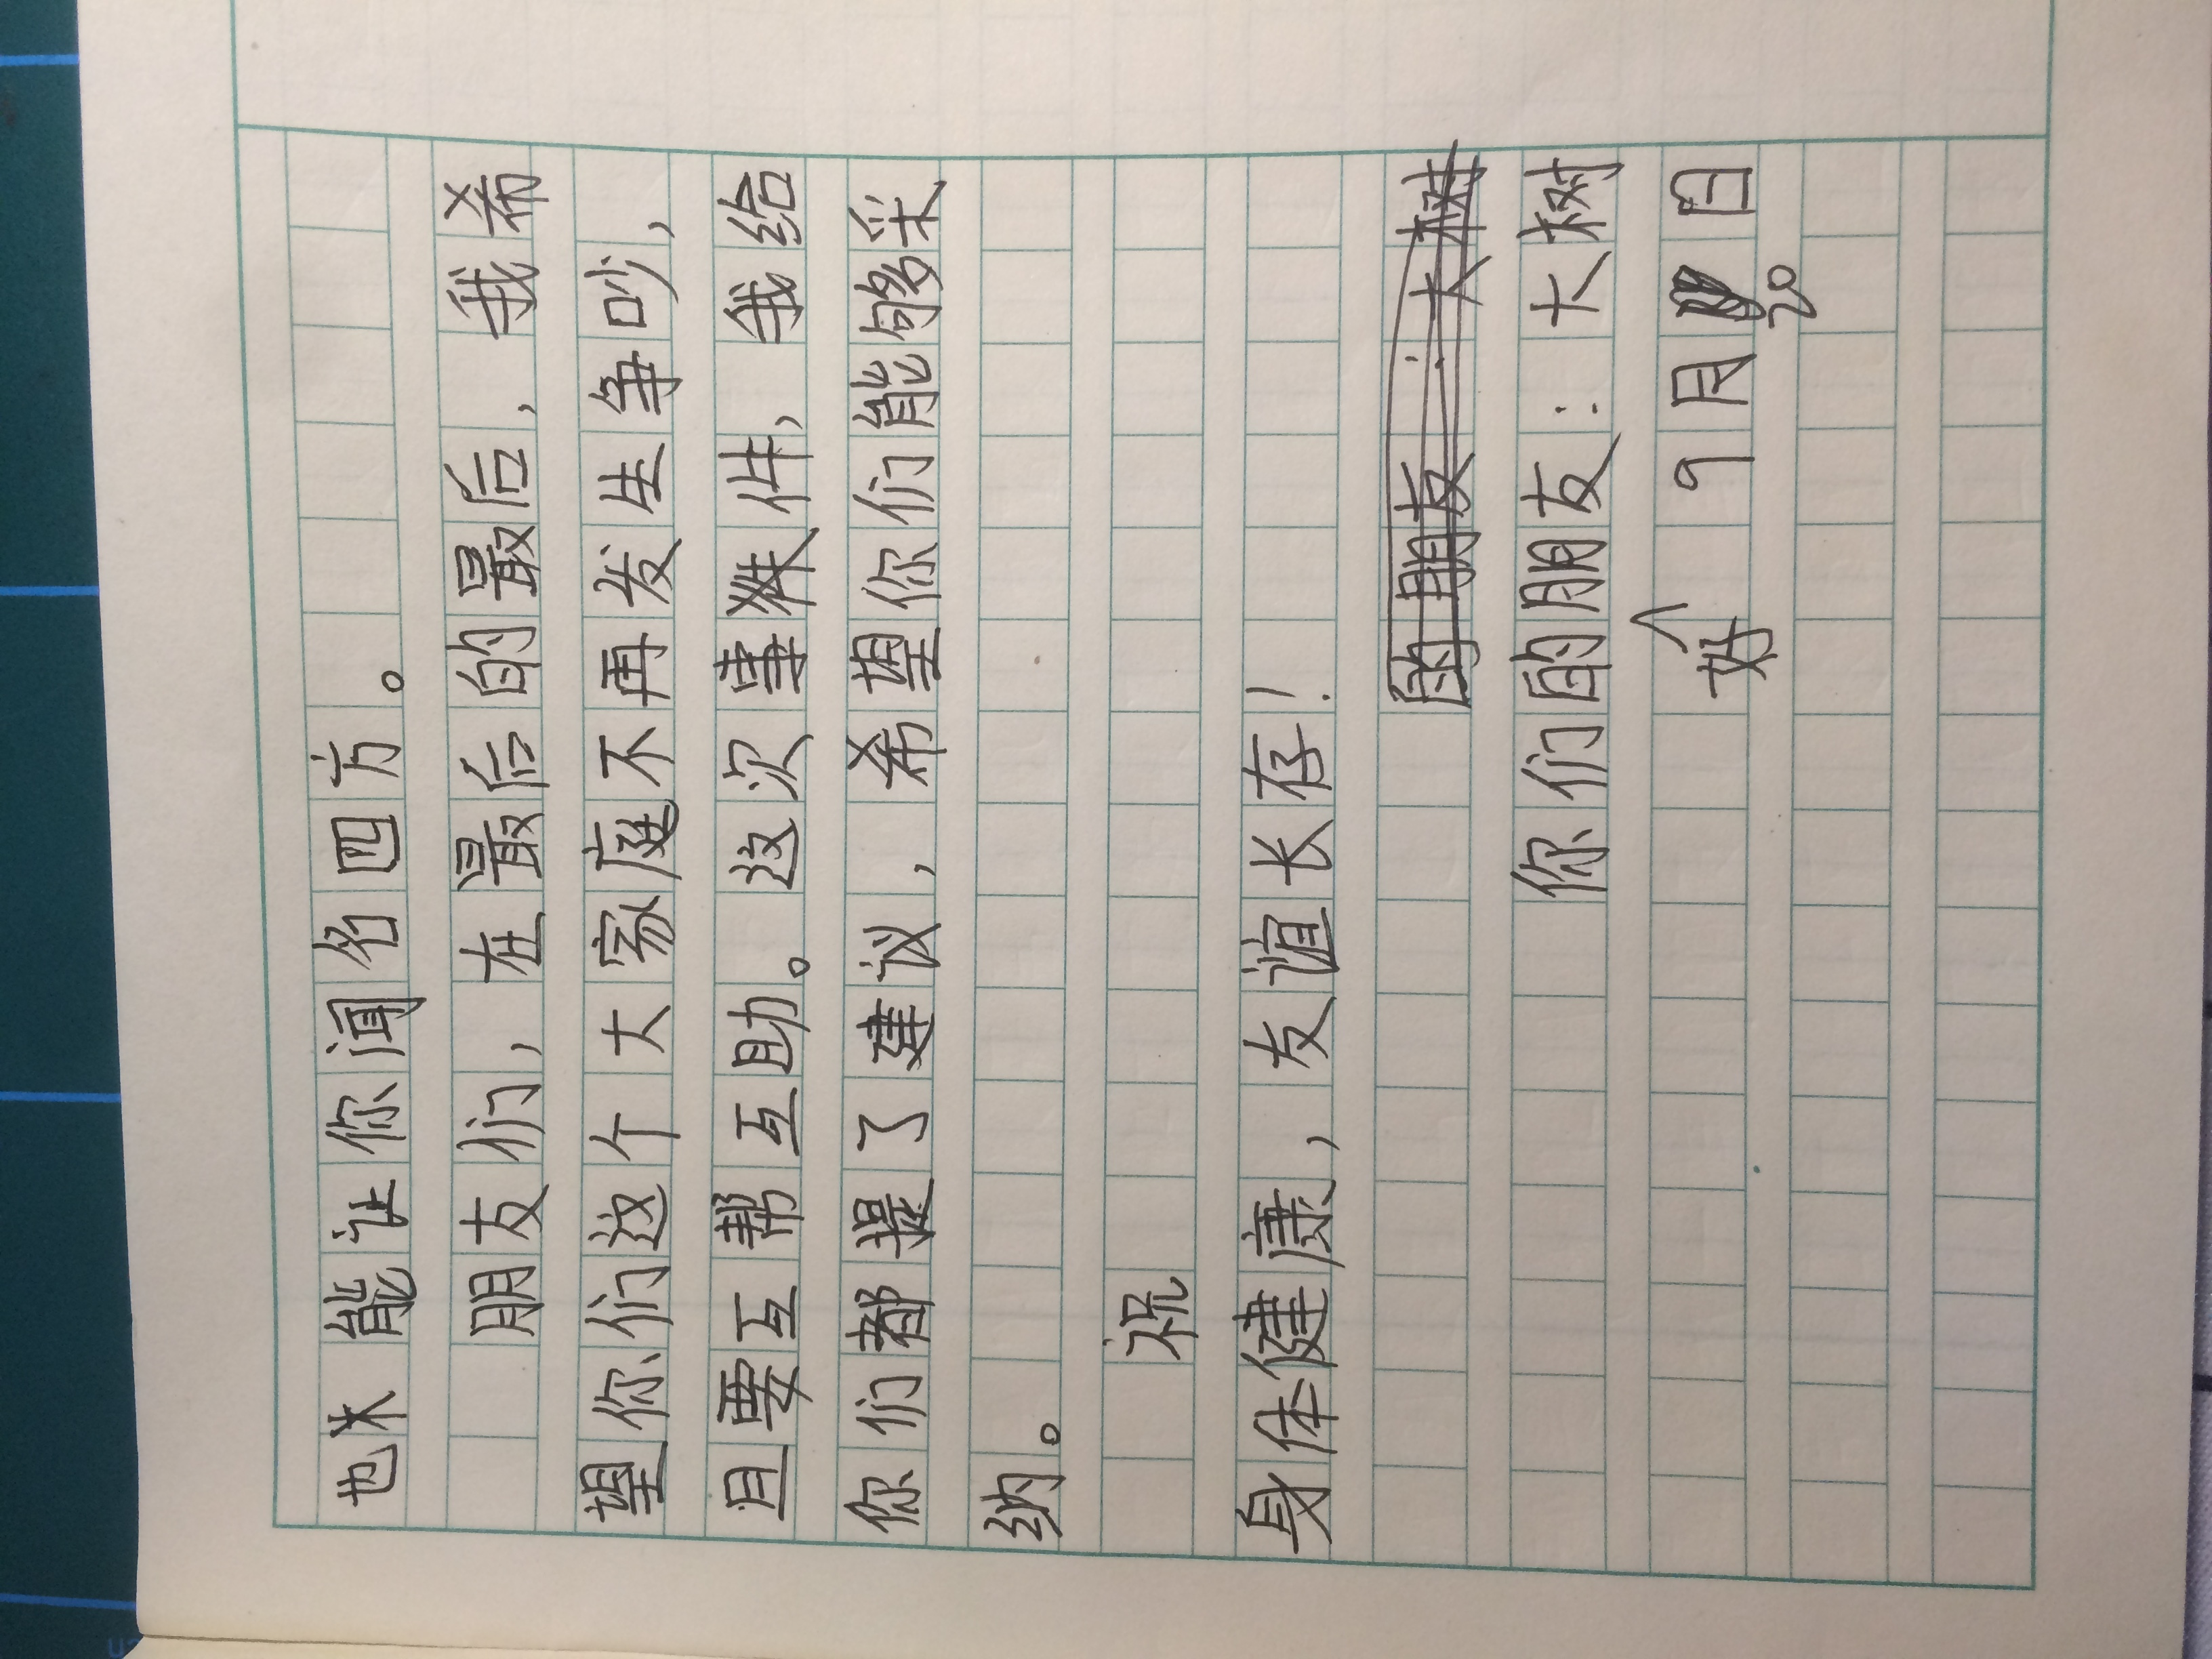 也才能让你闻名四方。
朋友们，在最后的最后，我希
望你们这个大家庭不再发生争吵，
且要互帮互助。这次事件，我给
你们都提了建议，希望你们能够采
纳。
祝
身体健康，友谊长存！
的朋友：大树
你们的好朋友：大树
9月20日